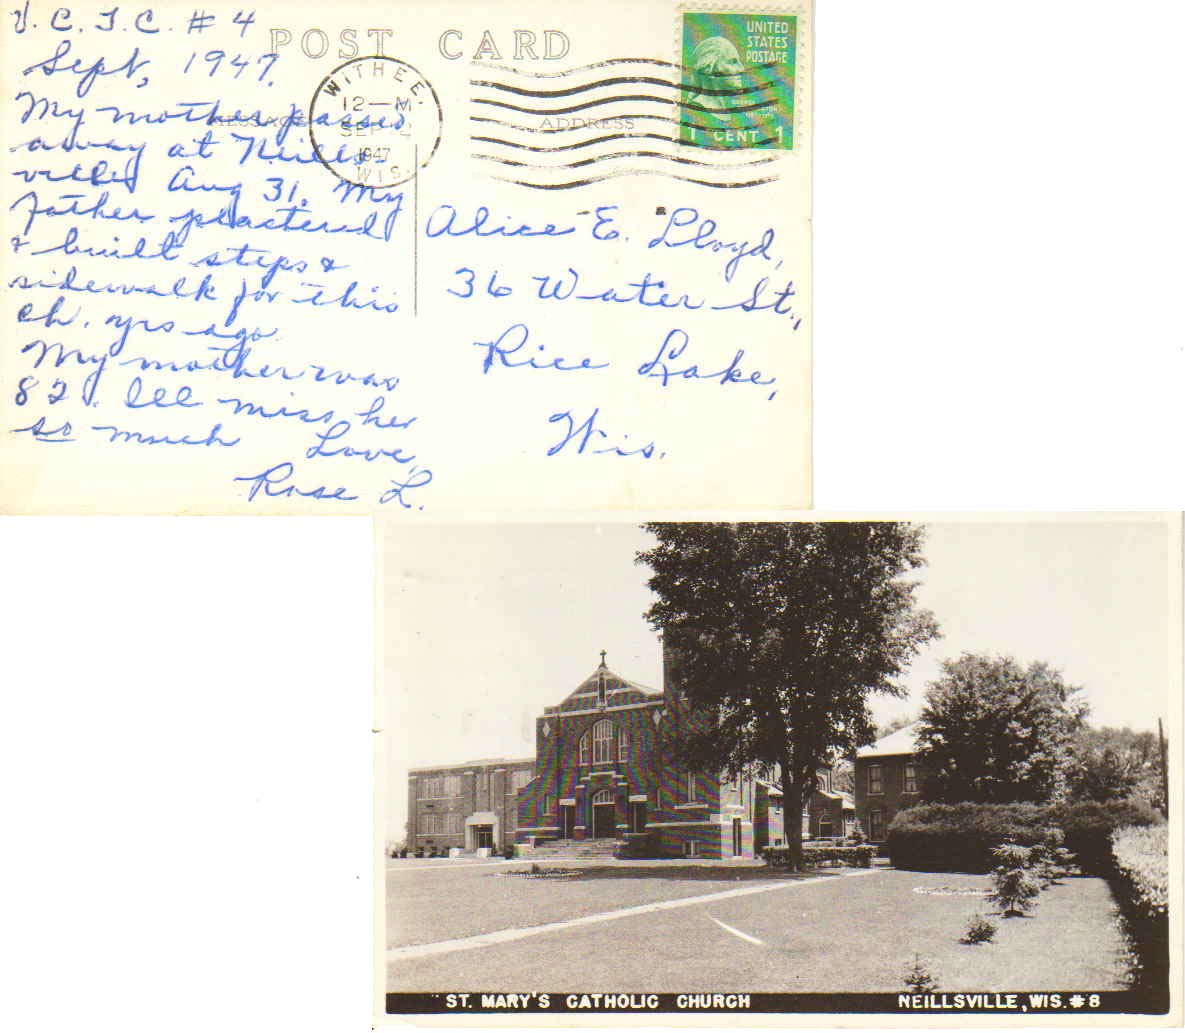 V. C. T. C. # 4
Sept, 1947.
My mother passed
away at Neills-
ville Aug 31. My
father plastered
& built steps &
sidewalk for this
ch. yrs ago.
My mother was
82. Ill miss her
so much Love,
Rose L.
POST CARD
MESSAGE
ADDRESS
WITHEE.
12—M
SEP 2
1947
WIS.
UNITED
STATES
POSTAGE
1 CENT 1
Alice E. Lloyd,
36 Water St.,
Rice Lake,
Wis.
ST. MARY'S CATHOLIC CHURCH NEILLSVILLE, WIS. #8